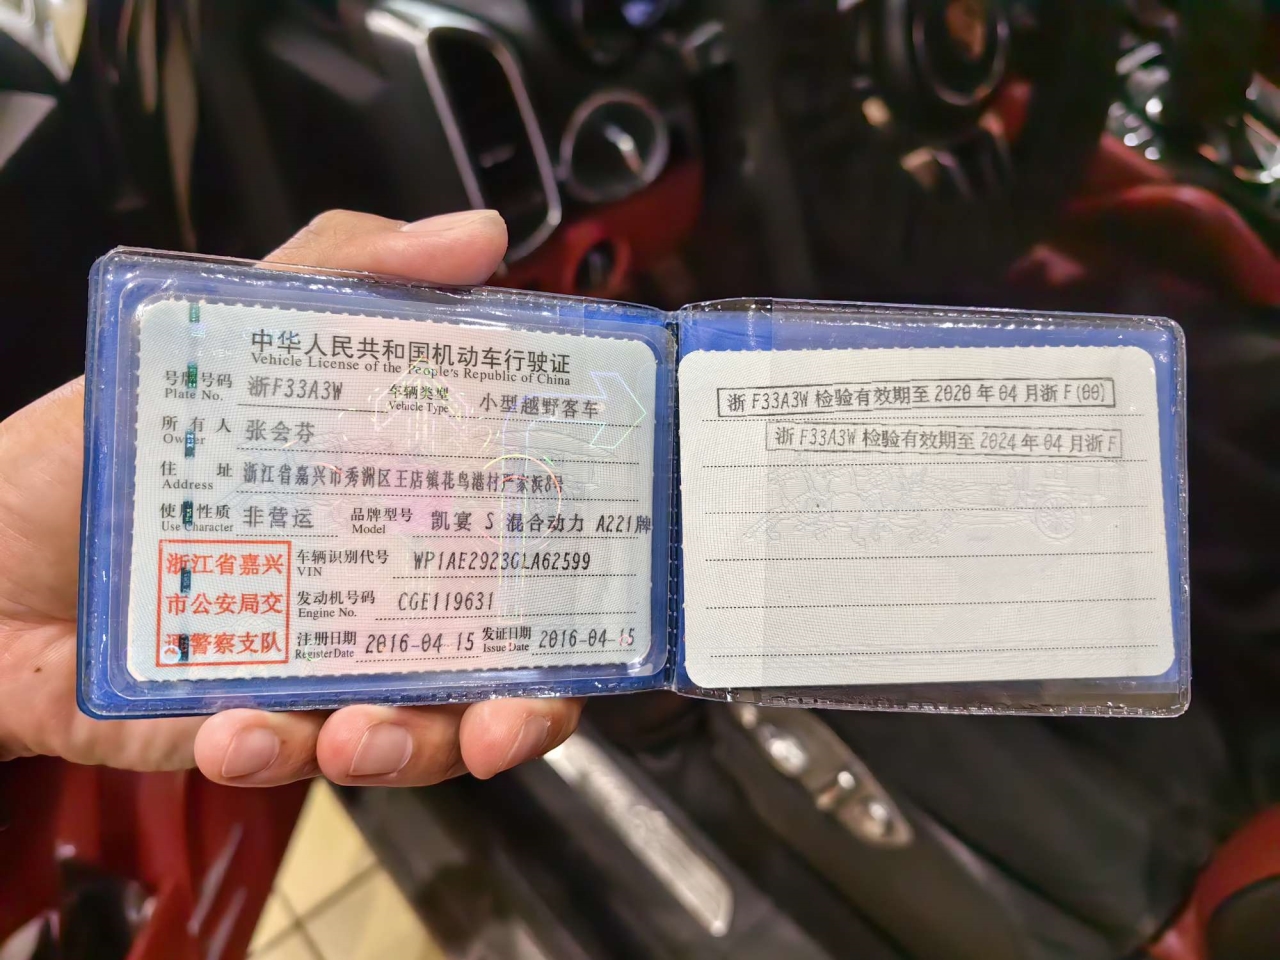 中华人民共和国机动车行驶证
Vehicle License of the People's Republic of China
号牌号码 浙F33A3W 车辆类型 小型越野客车
Plate No. Vehicle Type
所有人 张会芬
Owner
住址 浙江省嘉兴市秀洲区王店镇花鸟港村严家浜8号
Address
使用性质 非营运 品牌型号 凯宴 S 混合动力 A221牌
Use Character Model
浙江省嘉兴
市公安局交
通警察支队
车辆识别代号 WP1AE2923GLA62599
VIN
发动机号码 CGE119631
Engine No.
注册日期 2016-04-15 发证日期 2016-04-15
Register Date Issue Date
浙 F33A3W 检验有效期至 2020 年 04 月浙 F(00)
浙 F33A3W 检验有效期至 2024 年 04 月浙 F